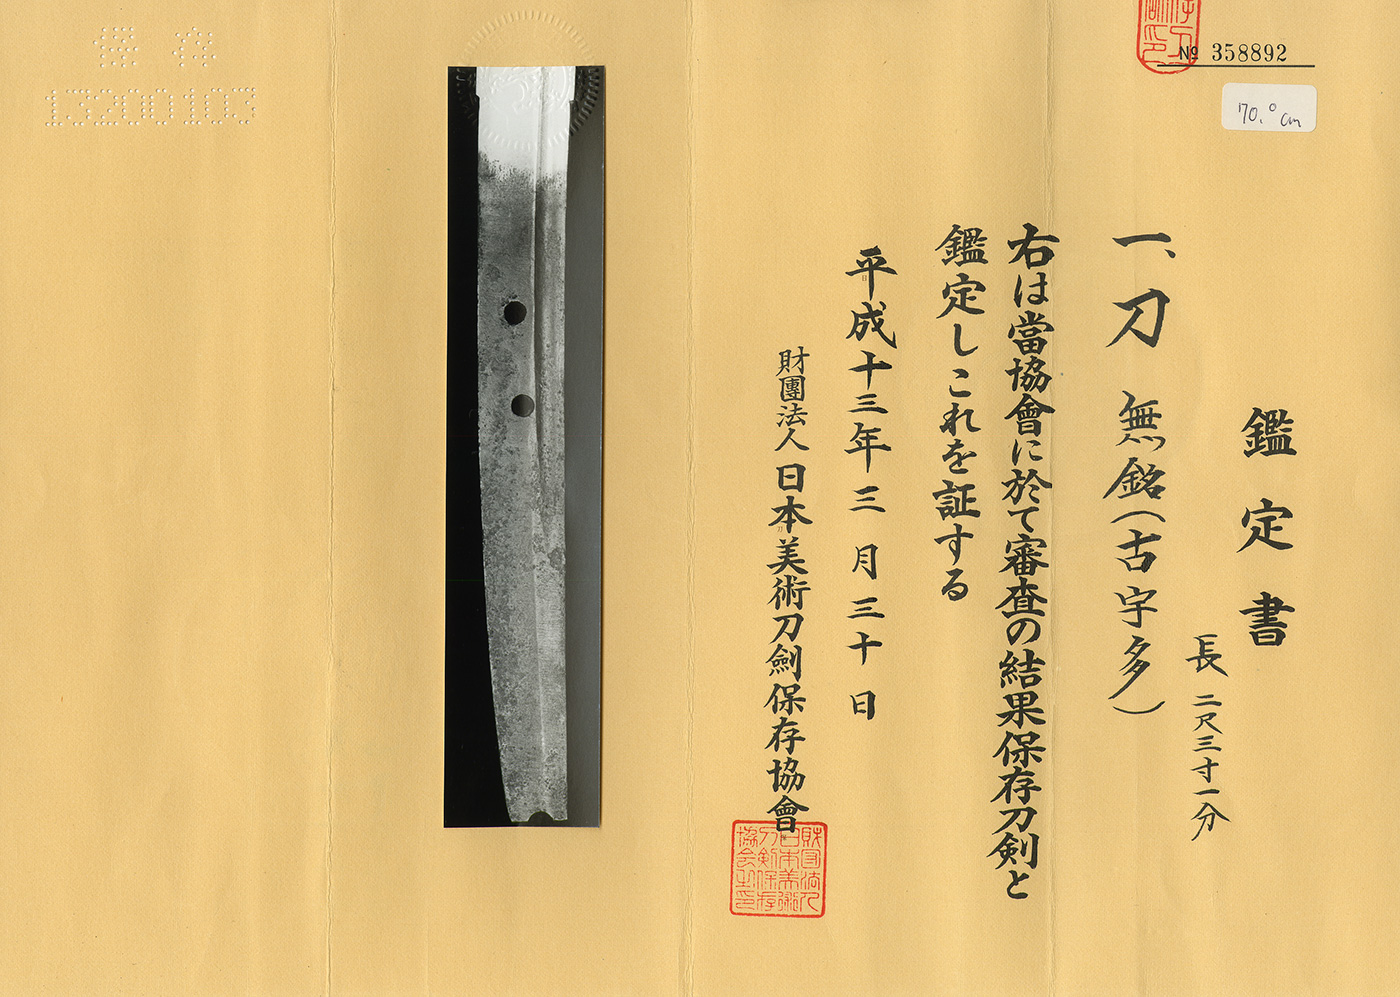 № 358892
70.0cm
鑑定書
長 二尺三寸一分
一、刀 無銘(古宇多)
右は當協會に於て審査の結果保存刀剣と
鑑定しこれを証する
平成十三年三月三十日
財團法人 日本美術刀劍保存協會
財団法人
日本美術
刀剣保存
協会之印
保存
13200103